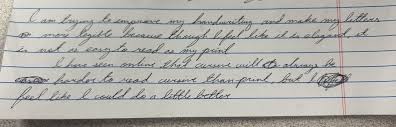 I am trying to improve my handwriting and make my letters
more legible because though I feel like it is elegant it
is not as easy to read as my print
I have seen online that cursive will always be
harder to read cursive than print, but I
feel like I could do a little better